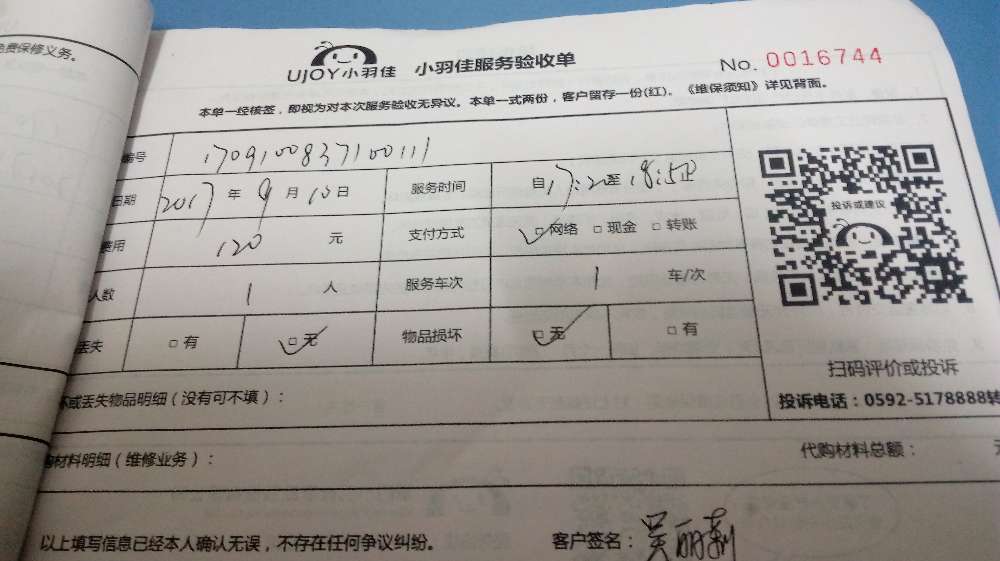 免费保修义务。
UJOY小羽佳 小羽佳服务验收单 No. 0016744
本单一经核签，即视为对本次服务验收无异议。本单一式两份，客户留存一份(红)。《维保须知》详见背面。
编号 170910083710011
日期 2017 年 9 月 10 日 服务时间 自 17:20 至 18:50
费用 120 元 支付方式 ☑网络 □现金 □转账
人数 1 人 服务车次 1 车/次
丢失 □有 ☑无 物品损坏 ☑无 □有
投诉或建议
扫码评价或投诉
投诉电话：0592-5178888转
坏或丢失物品明细（没有可不填）：
购材料明细（维修业务）： 代购材料总额：
以上填写信息已经本人确认无误，不存在任何争议纠纷。 客户签名：吴丽莉